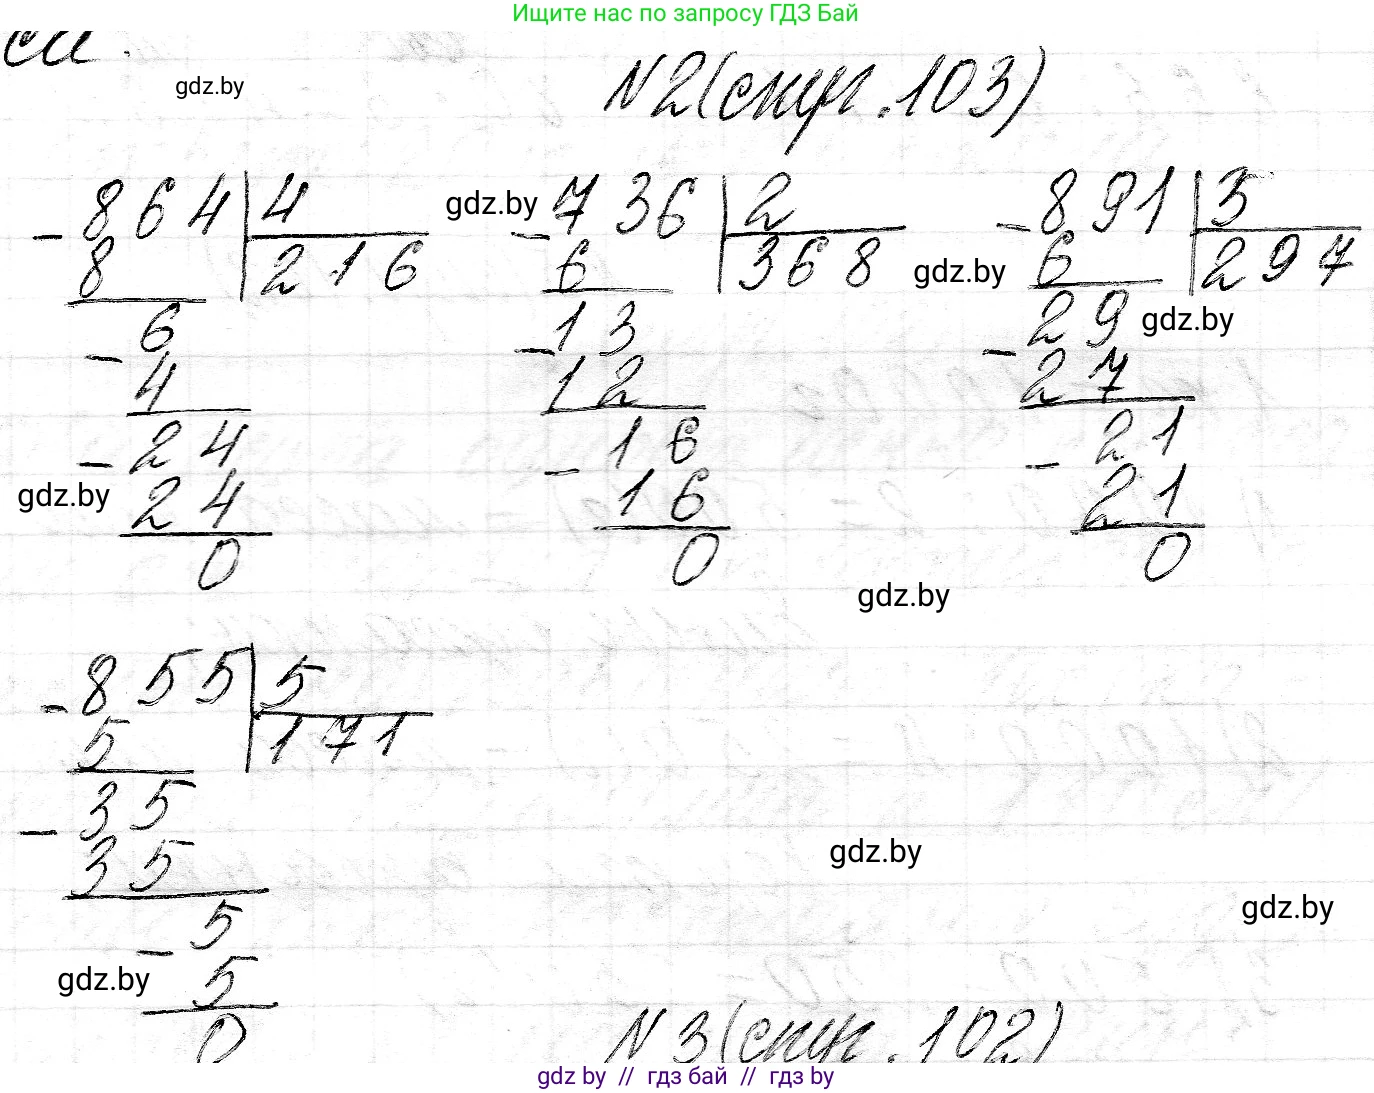 Ищите нас по запросу ГДЗ Бай
си.
gdz.by
N2(стр.103)
-864|4 gdz.by -736|2 -891|3
8 216 6 368 gdz.by 6 297
6 13 29 gdz.by
-4 -12 -27
-24 -16 -21
gdz.by 24 16 21
0 0 0
gdz.by
-855|5
5 171
-35
35 gdz.by
-5 gdz.by
gdz.by 5
0 N3(стр.102)
gdz by // гдз бай // гдз by